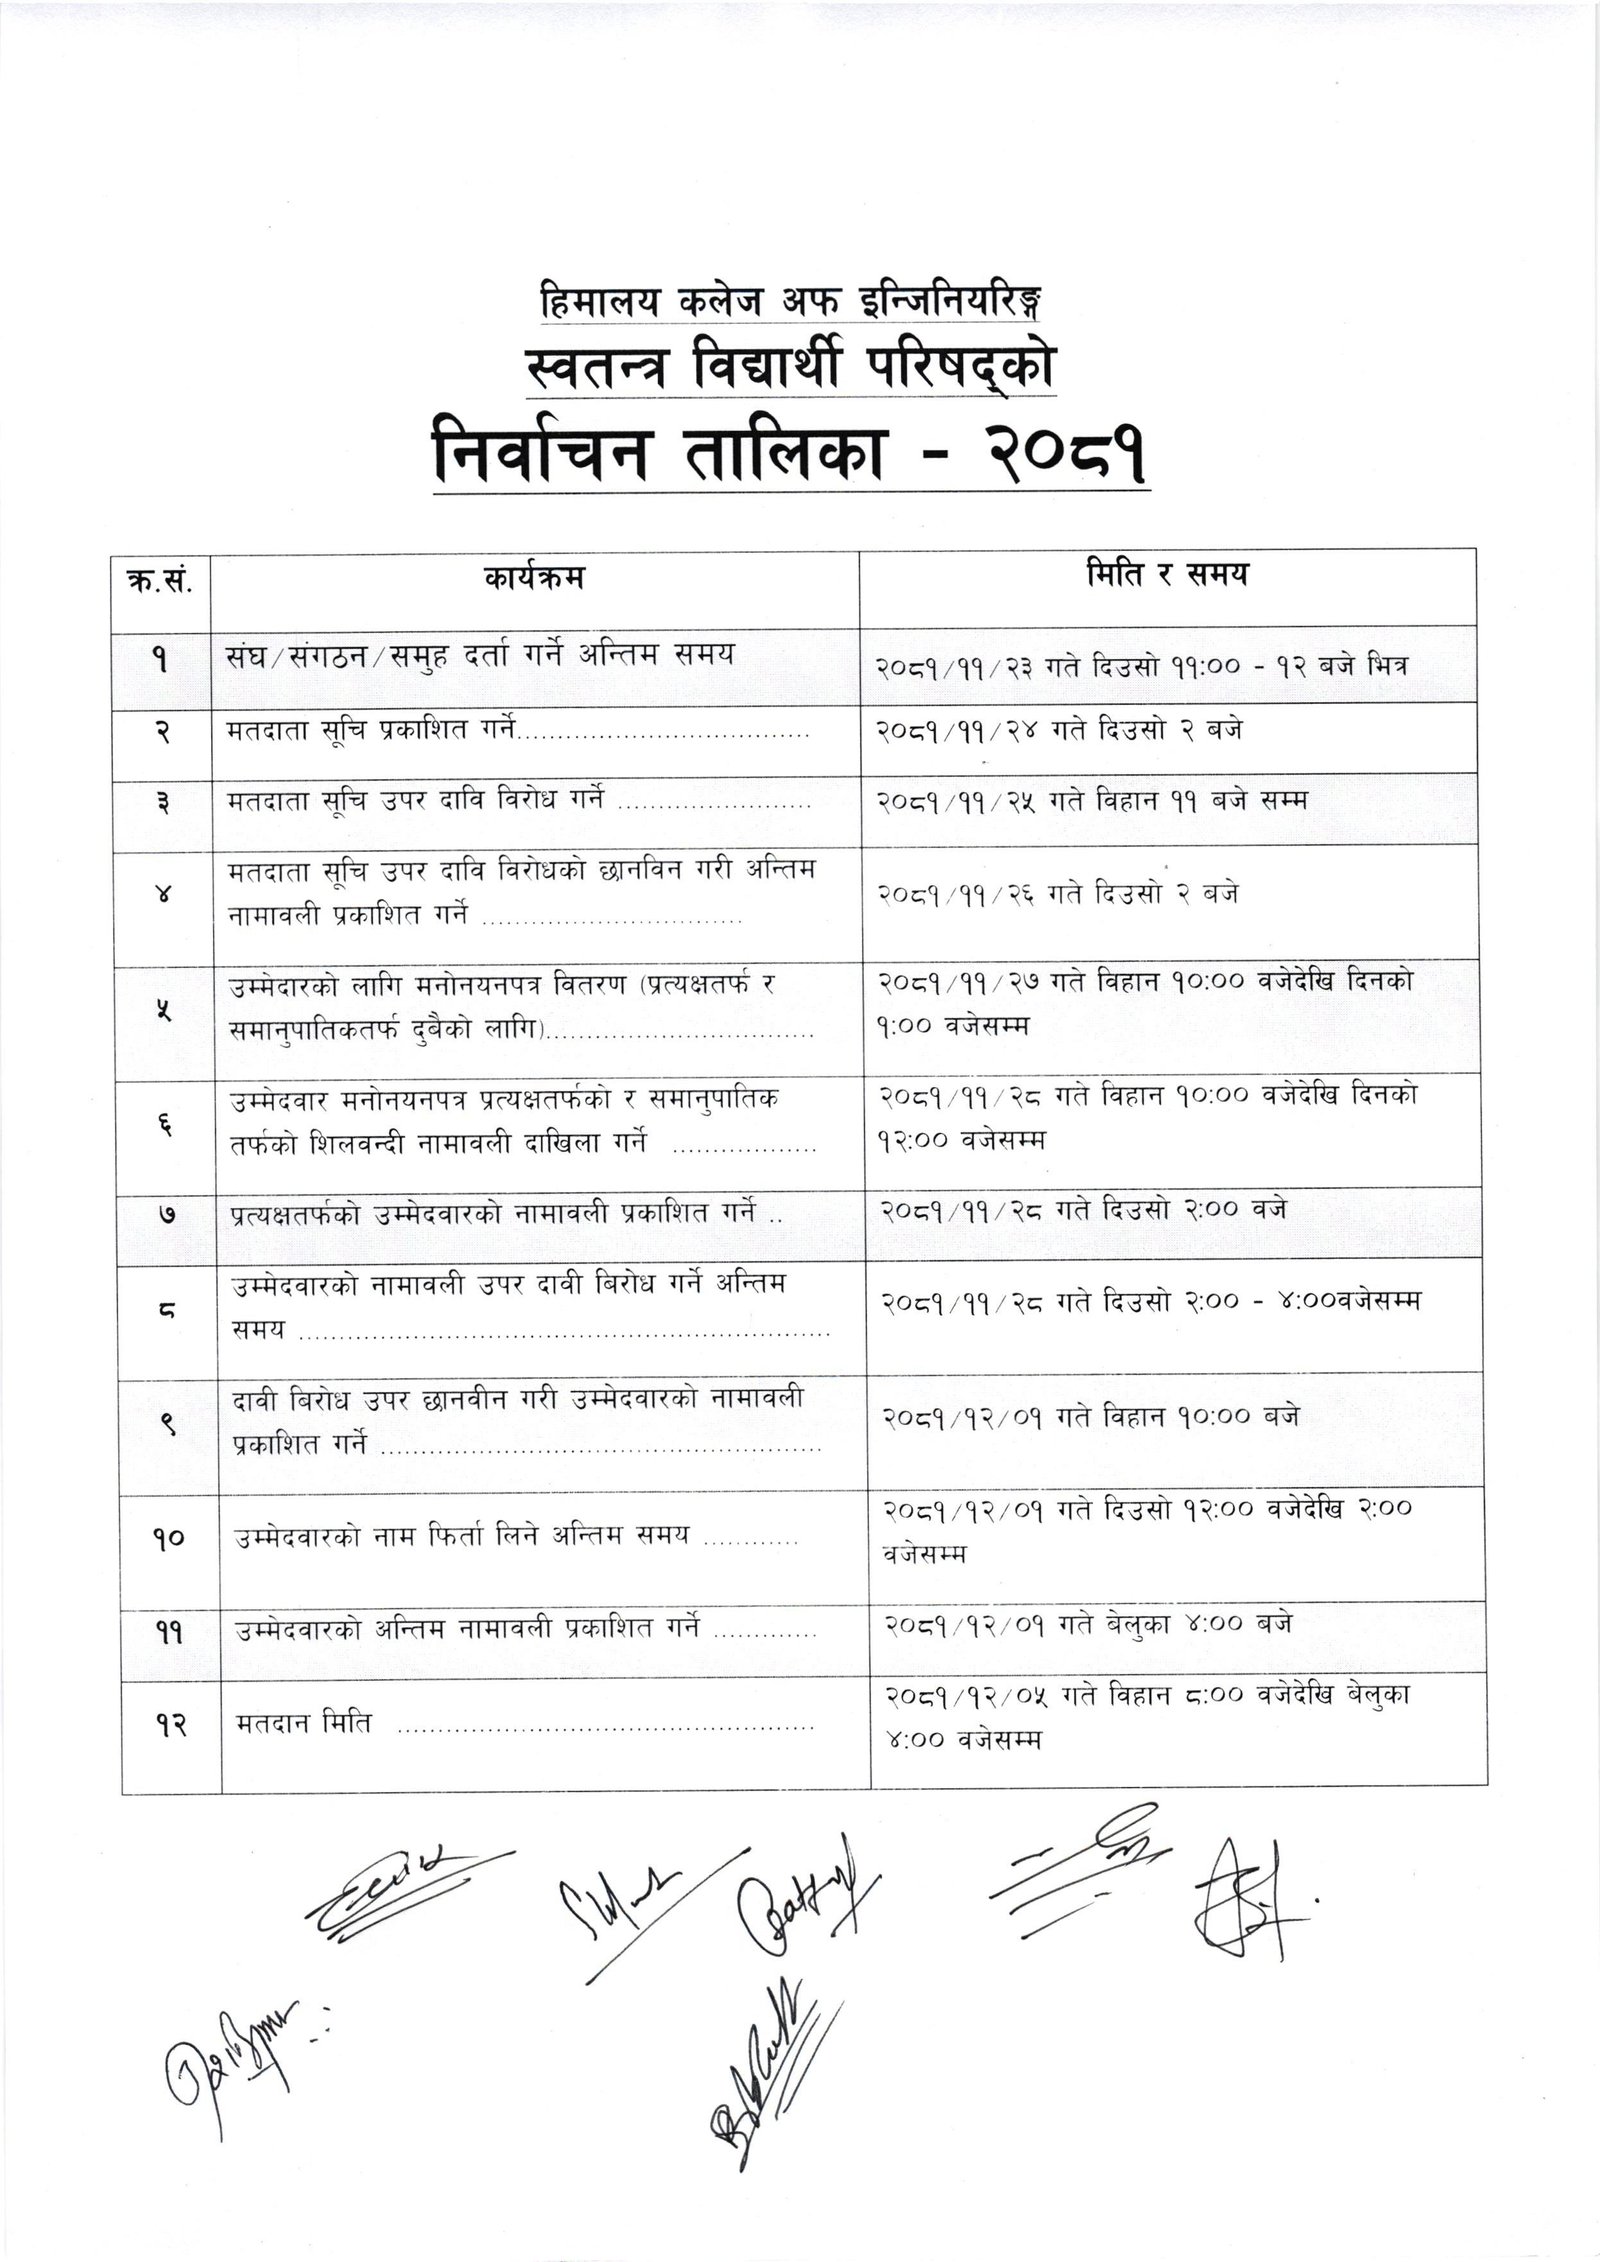 हिमालय कलेज अफ इन्जिनियरिङ्ग
स्वतन्त्र विद्यार्थी परिषद्को
निर्वाचन तालिका - २०८१
क्र.सं. कार्यक्रम मिति र समय
१ संघ/संगठन/समुह दर्ता गर्ने अन्तिम समय २०८१/११/२३ गते दिउसो ११:०० - १२ बजे भित्र
२ मतदाता सूचि प्रकाशित गर्ने.................................... २०८१/११/२४ गते दिउसो २ बजे
३ मतदाता सूचि उपर दावि विरोध गर्ने ........................ २०८१/११/२५ गते विहान ११ बजे सम्म
४ मतदाता सूचि उपर दावि विरोधको छानविन गरी अन्तिम
नामावली प्रकाशित गर्ने ................................ २०८१/११/२६ गते दिउसो २ बजे
५ उम्मेदारको लागि मनोनयनपत्र वितरण (प्रत्यक्षतर्फ र
समानुपातिकतर्फ दुबैको लागि)................................. २०८१/११/२७ गते विहान १०:०० वजेदेखि दिनको
१:०० वजेसम्म
६ उम्मेदवार मनोनयनपत्र प्रत्यक्षतर्फको र समानुपातिक
तर्फको शिलवन्दी नामावली दाखिला गर्ने .................. २०८१/११/२८ गते विहान १०:०० वजेदेखि दिनको
१२:०० वजेसम्म
७ प्रत्यक्षतर्फको उम्मेदवारको नामावली प्रकाशित गर्ने .. २०८१/११/२८ गते दिउसो २:०० वजे
८ उम्मेदवारको नामावली उपर दावी बिरोध गर्ने अन्तिम
समय ................................................................. २०८१/११/२८ गते दिउसो २:०० - ४:००वजेसम्म
९ दावी बिरोध उपर छानवीन गरी उम्मेदवारको नामावली
प्रकाशित गर्ने ...................................................... २०८१/१२/०१ गते विहान १०:०० बजे
१० उम्मेदवारको नाम फिर्ता लिने अन्तिम समय ............ २०८१/१२/०१ गते दिउसो १२:०० वजेदेखि २:००
वजेसम्म
११ उम्मेदवारको अन्तिम नामावली प्रकाशित गर्ने ............. २०८१/१२/०१ गते बेलुका ४:०० बजे
१२ मतदान मिति ................................................... २०८१/१२/०५ गते विहान ८:०० वजेदेखि बेलुका
४:०० वजेसम्म